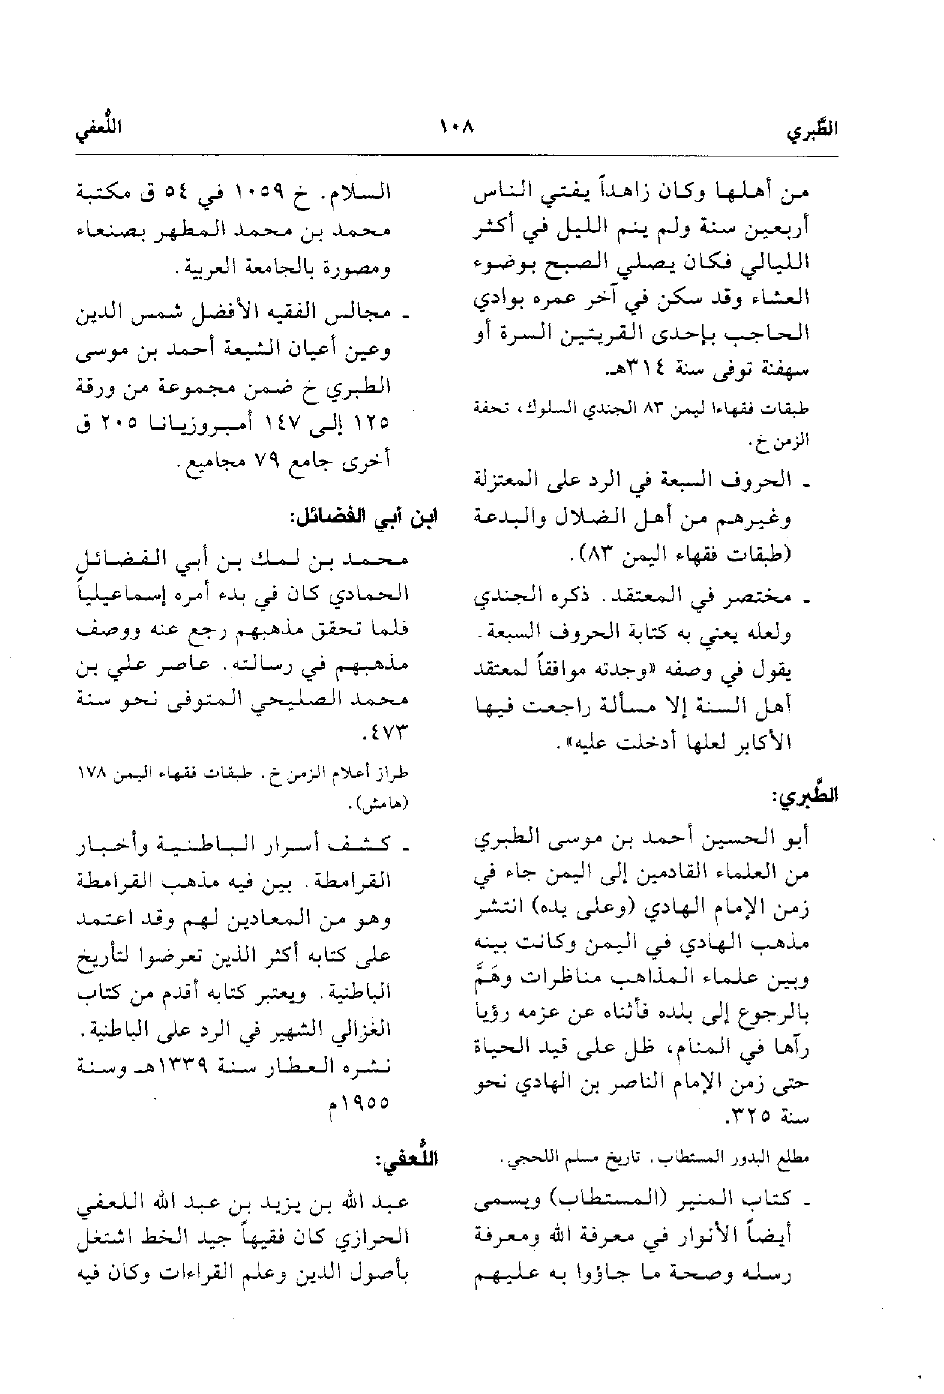 الطَّبري
١٠٨
اللُّعفي
من أهلها وكان زاهداً يفتي الناس
أربعين سنة ولم ينم الليل في أكثر
الليالي فكان يصلي الصبح بوضوء
العشاء وقد سكن في آخر عمره بوادي
الحاجب بإحدى القريتين السرة أو
سهفنة توفى سنة ٣١٤هـ.
طبقات فقهاء اليمن ٨٣ الجندي السلوك، تحفة
الزمن خ.
ـ الحروف السبعة في الرد على المعتزلة
وغيرهم من أهل الضلال والبدعة
(طبقات فقهاء اليمن ٨٣).
ـ مختصر في المعتقد. ذكره الجندي
ولعله يعني به كتابة الحروف السبعة.
يقول في وصفه «وجدته موافقاً لمعتقد
أهل السنة إلا مسألة راجعت فيها
الأكابر لعلها أدخلت عليه».
الطَّبري:
أبو الحسين أحمد بن موسى الطبري
من العلماء القادمين إلى اليمن جاء في
زمن الإمام الهادي (وعلى يده) انتشر
مذهب الهادي في اليمن وكانت بينه
وبين علماء المذاهب مناظرات وهَمَّ
بالرجوع إلى بلده فأثناه عن عزمه رؤيا
رآها في المنام، ظل على قيد الحياة
حتى زمن الإمام الناصر بن الهادي نحو
سنة ٣٢٥.
مطلع البدور المستطاب. تاريخ مسلم اللحجي.
ـ كتاب المنير (المستطاب) ويسمى
أيضاً الأنوار في معرفة الله ومعرفة
رسله وصحة ما جاؤوا به عليهم
السلام. خ ١٠٥٩ في ٥٤ ق مكتبة
محمد بن محمد المطهر بصنعاء
ومصورة بالجامعة العربية.
ـ مجالس الفقيه الأفضل شمس الدين
وعين أعيان الشيعة أحمد بن موسى
الطبري خ ضمن مجموعة من ورقة
١٢٥ إلى ١٤٧ أمبروزيانا ٢٠٥ ق
أخرى جامع ٧٩ مجاميع.
ابن أبي الفضائل:
محمد بن لمك بن أبي الفضائل
الحمادي كان في بدء أمره إسماعيلياً
فلما تحقق مذهبهم رجع عنه ووصف
مذهبهم في رسالته. عاصر علي بن
محمد الصليحي المتوفى نحو سنة
٤٧٣.
طراز أعلام الزمن خ. طبقات فقهاء اليمن ١٧٨
(هامش).
ـ كشف أسرار الباطنية وأخبار
القرامطة. بين فيه مذهب القرامطة
وهو من المعادين لهم وقد اعتمد
على كتابه أكثر الذين تعرضوا لتأريخ
الباطنية. ويعتبر كتابه أقدم من كتاب
الغزالي الشهير في الرد على الباطنية.
نشره العطار سنة ١٣٣٩هـ وسنة
١٩٥٥م
اللُّعفي:
عبد الله بن يزيد بن عبد الله اللعفي
الحرازي كان فقيهاً جيد الخط اشتغل
بأصول الدين وعلم القراءات وكان فيه